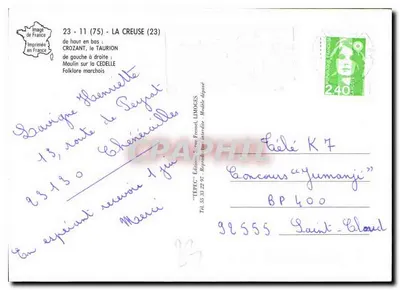 Image
de France
Imprimée
en France
23 - 11 (75) - LA CREUSE (23)
de haut en bas :
CROZANT, le TAURION
de gauche à droite :
Moulin sur la CEDELLE
Folklore marchois
2,40
Lavigne Henriette
13, route de Peyrat
Chénérailles
23130
En espérant recevoir 1 jeu
Merci
"TERPEC" Editions
LIMOGES
Reproduction interdite - Modèle déposé
Télé K7
Concours "Jumanji"
BP 400
92555 Saint-Cloud
23